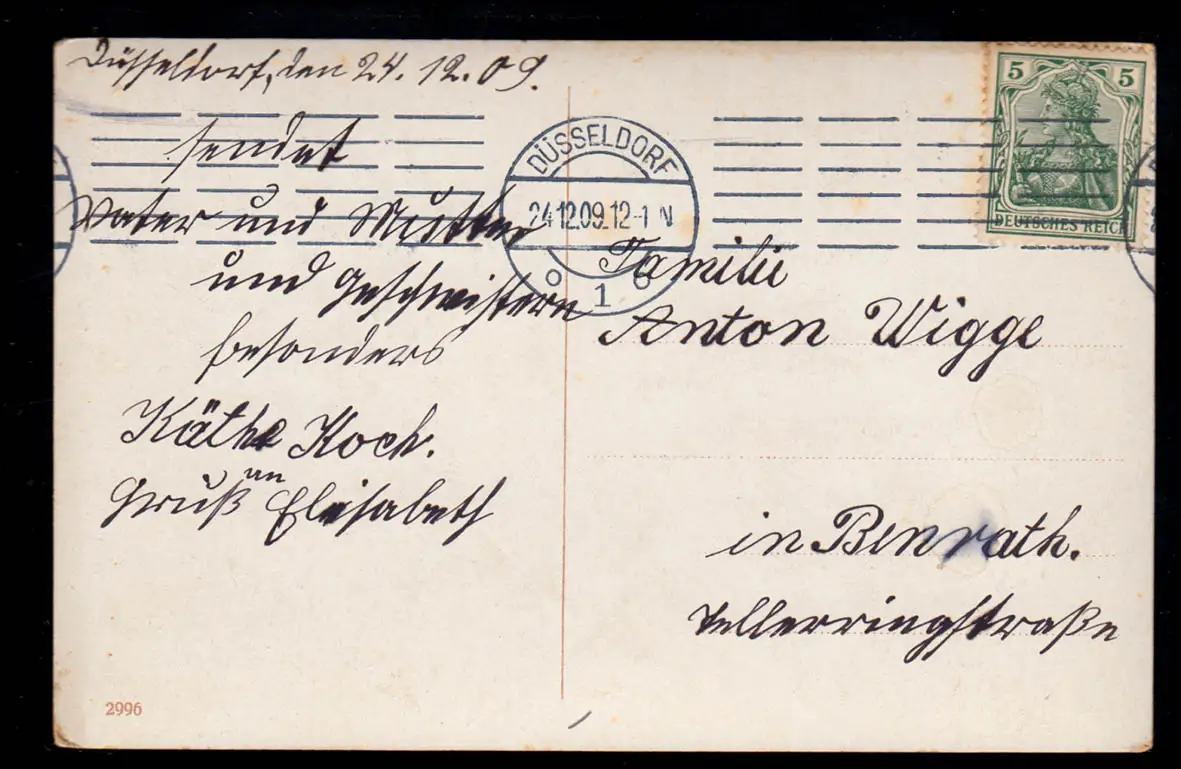 Düsseldorf, den 24. 12. 09.
sendet
Vater und Mutter
und Geschwistern
besonders
Käthe Koch.
Gruß an Elisabeth
DÜSSELDORF
24.12.09.12-1 N
o 1 o
5 5
DEUTSCHES REICH
Familie
Anton Wigge
in Benrath.
Tellerringstraße
2996